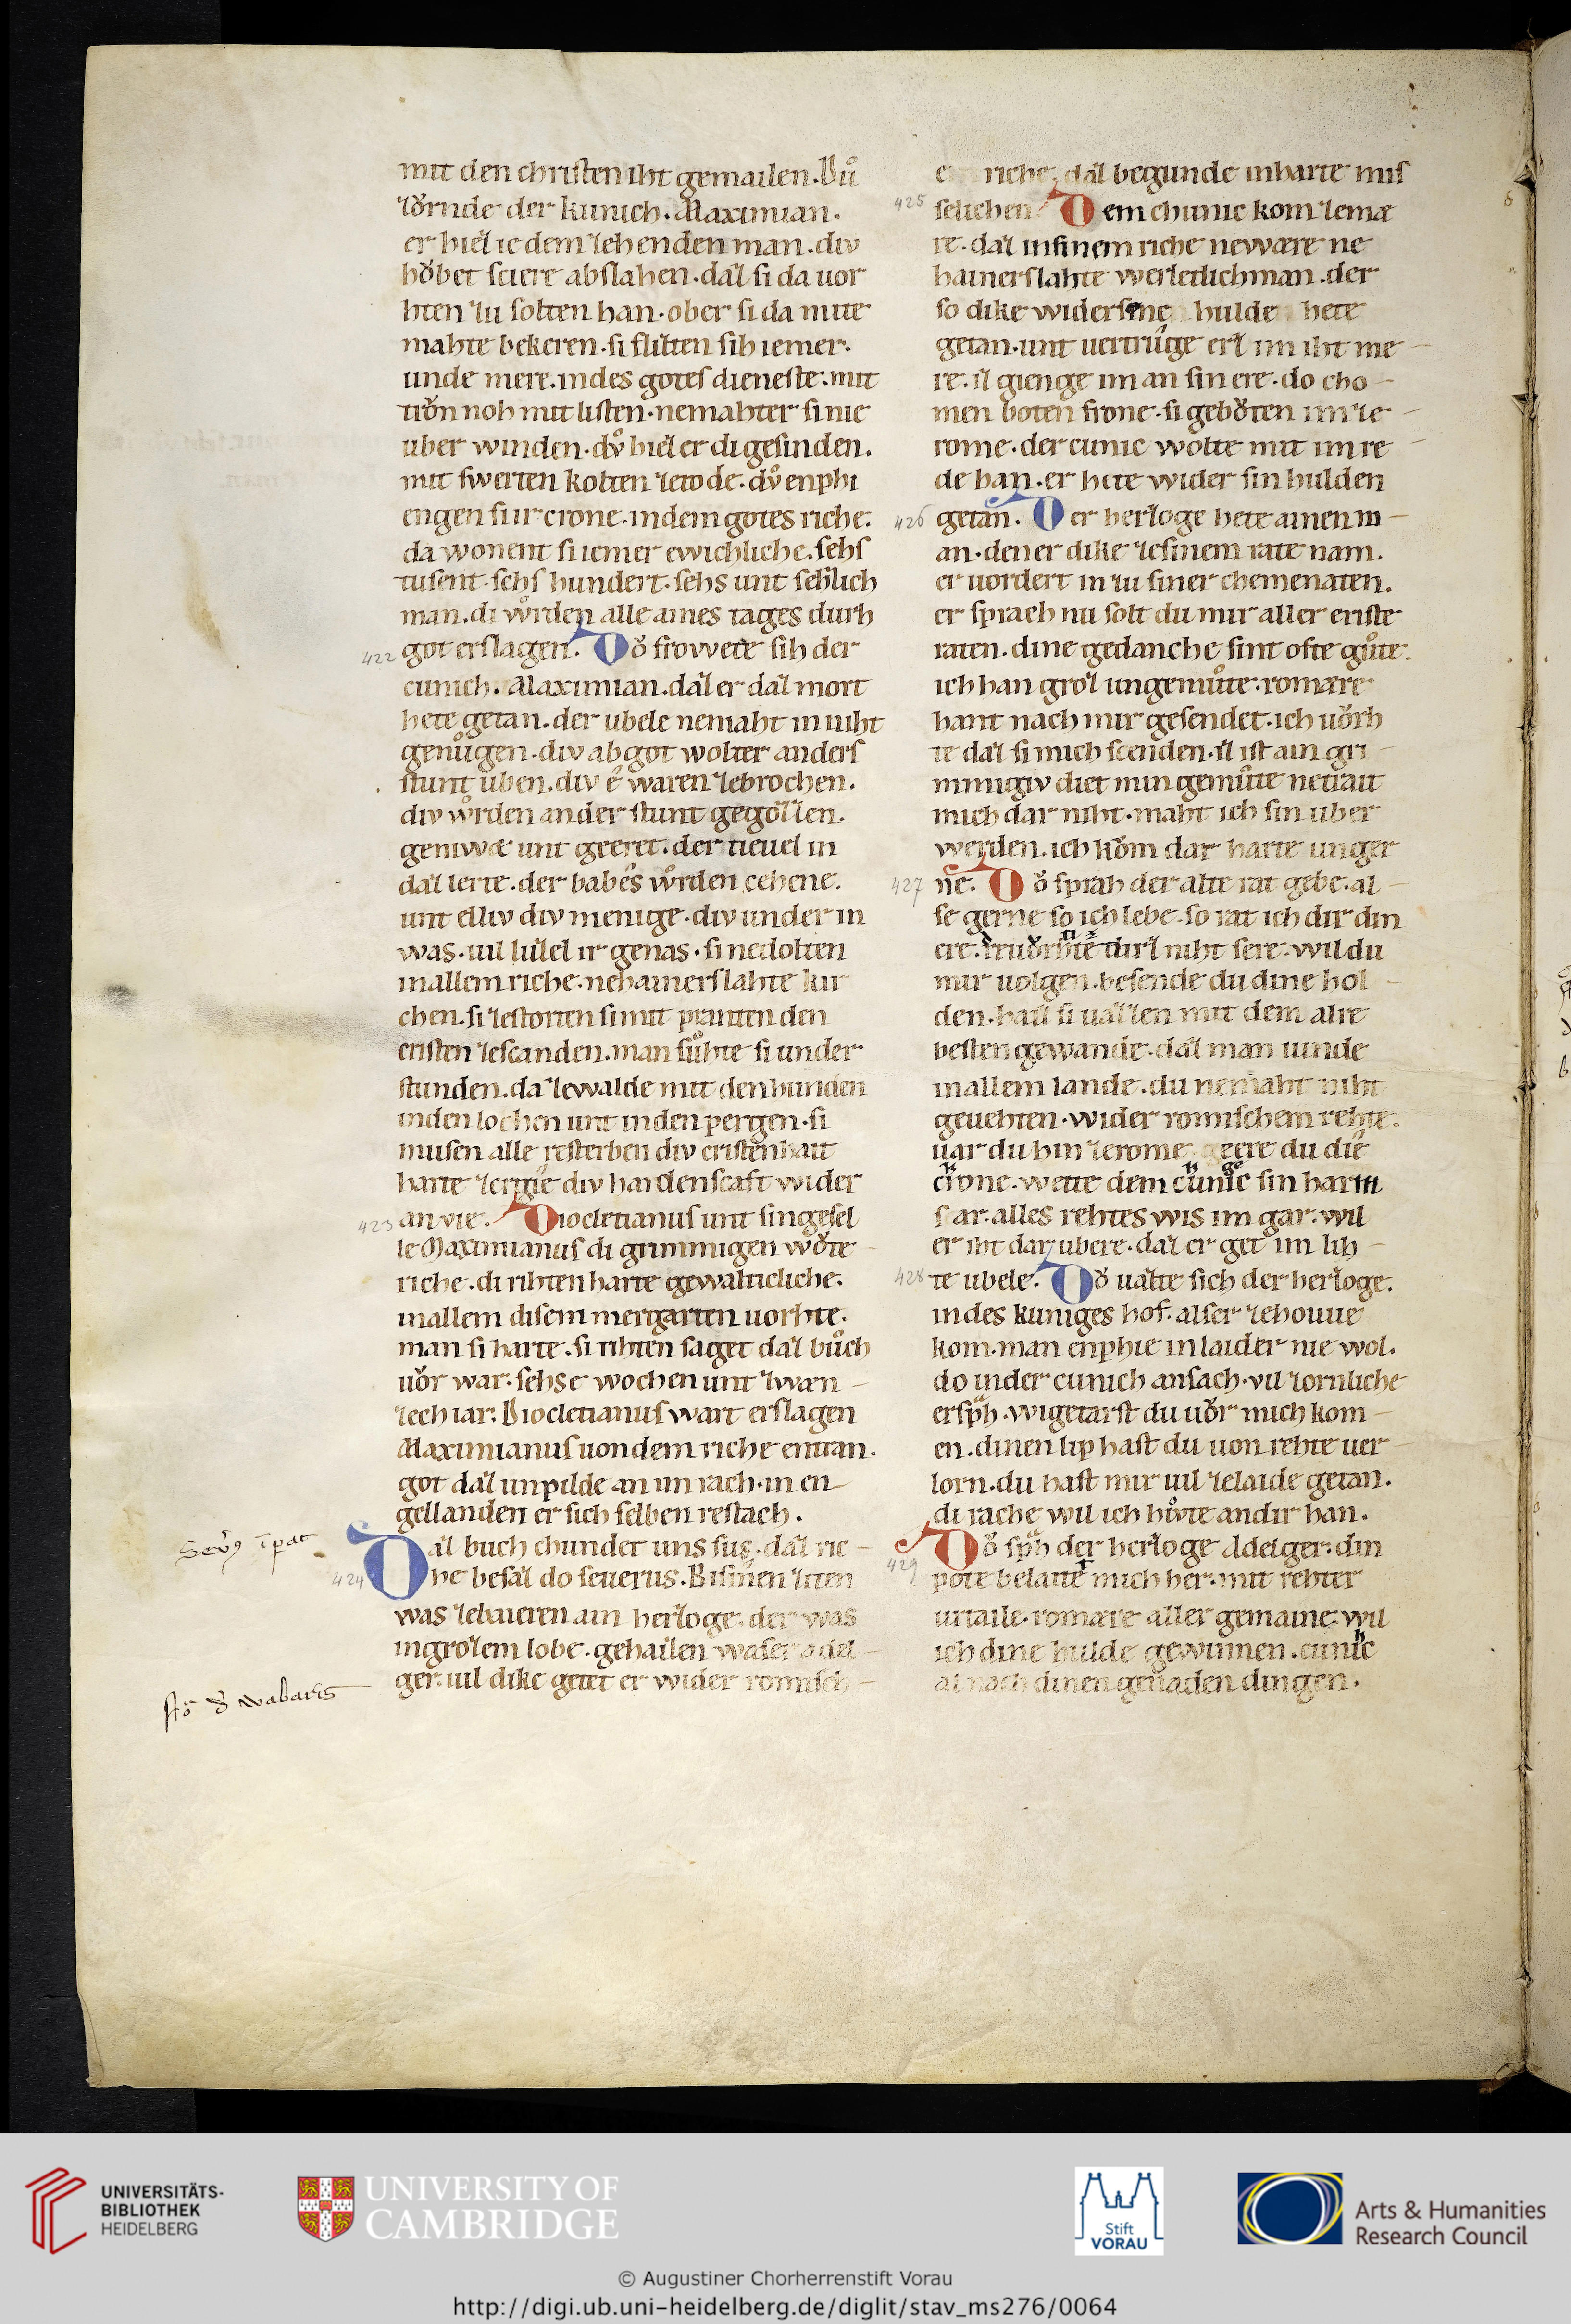 mit den christen iht gemailen. Duͦ
zoͮrnde der kunich. Maximian.
er hiez ie dem zehenden man. div
hoͮbet sciere abslahen. daz si da uor
hten zu solten han. ober si da mite
mahte bekeren. si flizten sih iemer.
unde mere. in des gotes dieneste. mit
troͮn noh mit listen. nemahter si nie
uber winden. dvͦ hiez er di gesinden.
mit swerten kolten zetode. dvͦ enphi
engen si ir crone. in dem gotes riche.
da wonent si iemer ewichliche. sehs
tusent. sehs hundert. sehs unt sehzich
man. di wͦrden alle aines tages durh
422 got erslagen. Doͮ frowete sih der
cunich. Maximian. daz er daz mort
hete getan. der ubele nemaht in niht
genuͦgen. div abgot wolter anders
stunt uͦben. div ê waren zebrochen.
div wͦrden ander stunt gegozzen.
geniwæ unt geeret. der tieuel in
daz lerte. der babes wͦrden cehene.
unt elliv div menige. div under in
was. uil luzel ir genas. si nedolten
in allem riche. nehainer slahte kir
chen. si zestorten si mit pranten den
cristen zescanden. man suͦhte si under
stunden. da zewalde mit den hunden
in den lochen unt in den pergen. si
musen alle resterben div cristenhait
harte zergie div haidenscaft wider
423 an vie. Diocletianus unt sin gesel
le Maximianus di grimmigen woͮte
riche. di rihten harte gewaltichliche.
in allem disem mergarten uorhte.
man si harte. si rihten saget daz buͦch
uoͮr war. sehse wochen unt zwæn
zech iar. Diocletianus wart erslagen
Maximianus uon dem riche entran.
got daz unpilde an im rach. in en
gellanden er sich selben restach.
Seuꝰ ĩpat
Daz buch chundet uns sus. daz ric
424 he besaz do seuerus. Bi sinen ziten
was zebaieren ain herzoge. der was
in grozem lobe. gehaizen was er adel
ger. uil dike getet er wider romisch
de wabaris
e riche, daz begunde in harte mis
425 selichen. Dem chunic kom ze mæ
re. daz in sinem riche newære ne
hainer slahte werltlich man. der
so dike wider sine hulde hete
getan. unt uertruͤge erz im iht me
re. iz gienge im an sin ere. do cho
men boten frone. si geboͮten im ze
rome. der cunic wolte mit im re
de han. er hete wider sin hulden
426 getan. Der herzoge hete ainen m
an. den er dike ze sinem rate nam.
er uordert in zu siner chemenaten.
er sprach nu solt du mir aller eriste
raten. dine gedanche sint ofte guͦte.
ich han groz ungemuͦte. romære
hant nach mir gesendet. ich uoͮrh
te daz si mich scenden. iz ist ain gri
mmigiv diet min gemuͦte netrait
mich dar niht. maht ich sin uber
werden. ich koͮm dar harte unger
427 ne. Doͮ sprah der alte rat gebe. al
se gerne so ich lebe. so rat ich dir din
ere. uoͮrhte dirz niht sere. wil du
mir uolgen. besende du dine hol
den. haiz si uazzen mit dem alre
besten gewande. daz man uinde
in allem lande. du nemaht niht
geuehten. wider romischem rehte.
uar du hin ze rome. geere du die
crone. wette dem cunige sin harm
s ar. alles rehtes wis im gar. wil
er iht dar ubere. daz er get im lih
428 te ubele. Doͮ uazte sich der herzoge.
in des kuniges hof. als er ze houue
kom. man enphie in laider nie wol.
do in der cunich ansach. vil zornliche
er spͣh. wi getarst du uoͮr mich kom
en. dinen lip hast du uon rehte uer
lorn. du hast mir uil zelaide getan.
di rache wil ich huͦte an dir han.
429 Doͮ spͣh der herzoge Adelger. din
pote belaite mich her. mit rehter
urtaile. romære aller gemaine. wil
ich dine hulde gewinnen. cunic
al nach dinen genaden dingen.
UNIVERSITÄTS-
BIBLIOTHEK
HEIDELBERG
UNIVERSITY OF
CAMBRIDGE
Stift
VORAU
Arts & Humanities
Research Council
© Augustiner Chorherrenstift Vorau
http://digi.ub.uni-heidelberg.de/diglit/stav_ms276/0064